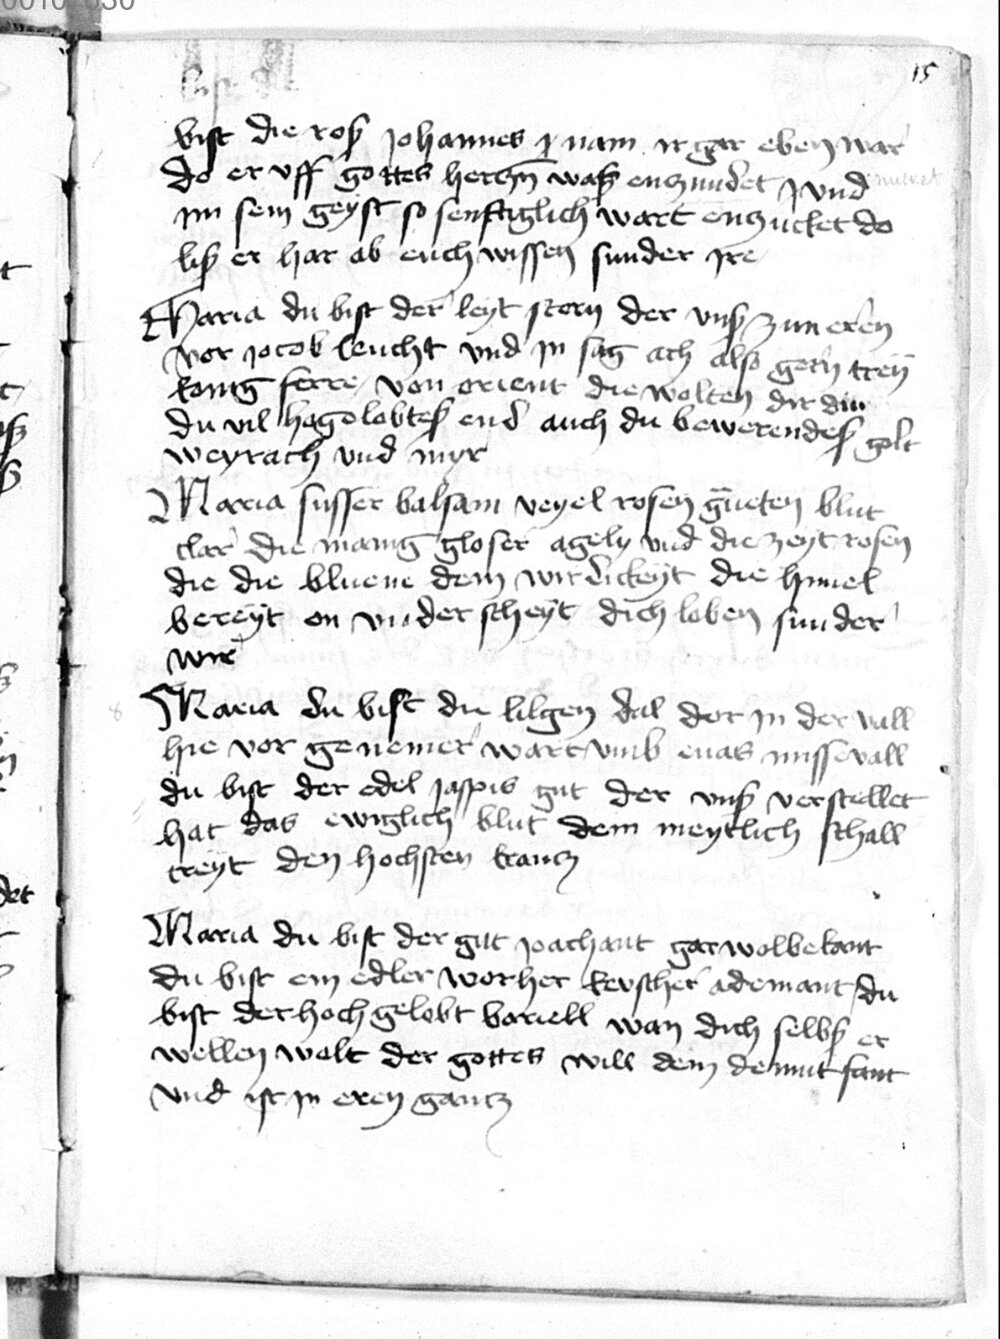 15
bist die rosß Johannes nam ir gar eben war
do er uff gottes herczn waß enczundet und
im sein geyst so senfftiglich wart enczucket do
ließ er har ab euch wissen sunder ire
Maria du bist der leyt stern der unß zun eren
vor jocob leucht und in sag ach also gern trey
konig ferre von orient die wolten dir din
du vil hagelobtes end auch du bewerendeß golt
weyrach und myr
Maria susser balsam veyel rosen gueten blut
clar die manig gloser agely und die zeyt rosen
die die bluene dem wirdickeyt die himel
bereyt on underscheyt dich loben sunder
wire
8
Maria du bist die lilgen dal der in der vall
hie vor genemer wart umb euas missevall
du bist der edel jaspis gut der unß verstellet
hat das ewiglich blut dein meytlich schall
treyt den hochsten krancz
Maria du bist der gut joachant gar wolbekant
du bist ein edler worher keuscher ademant du
bist der hochgelobt bariell wan dich selbß er
wellen wolt der gottes will dein demut fant
und ist in eren gancz